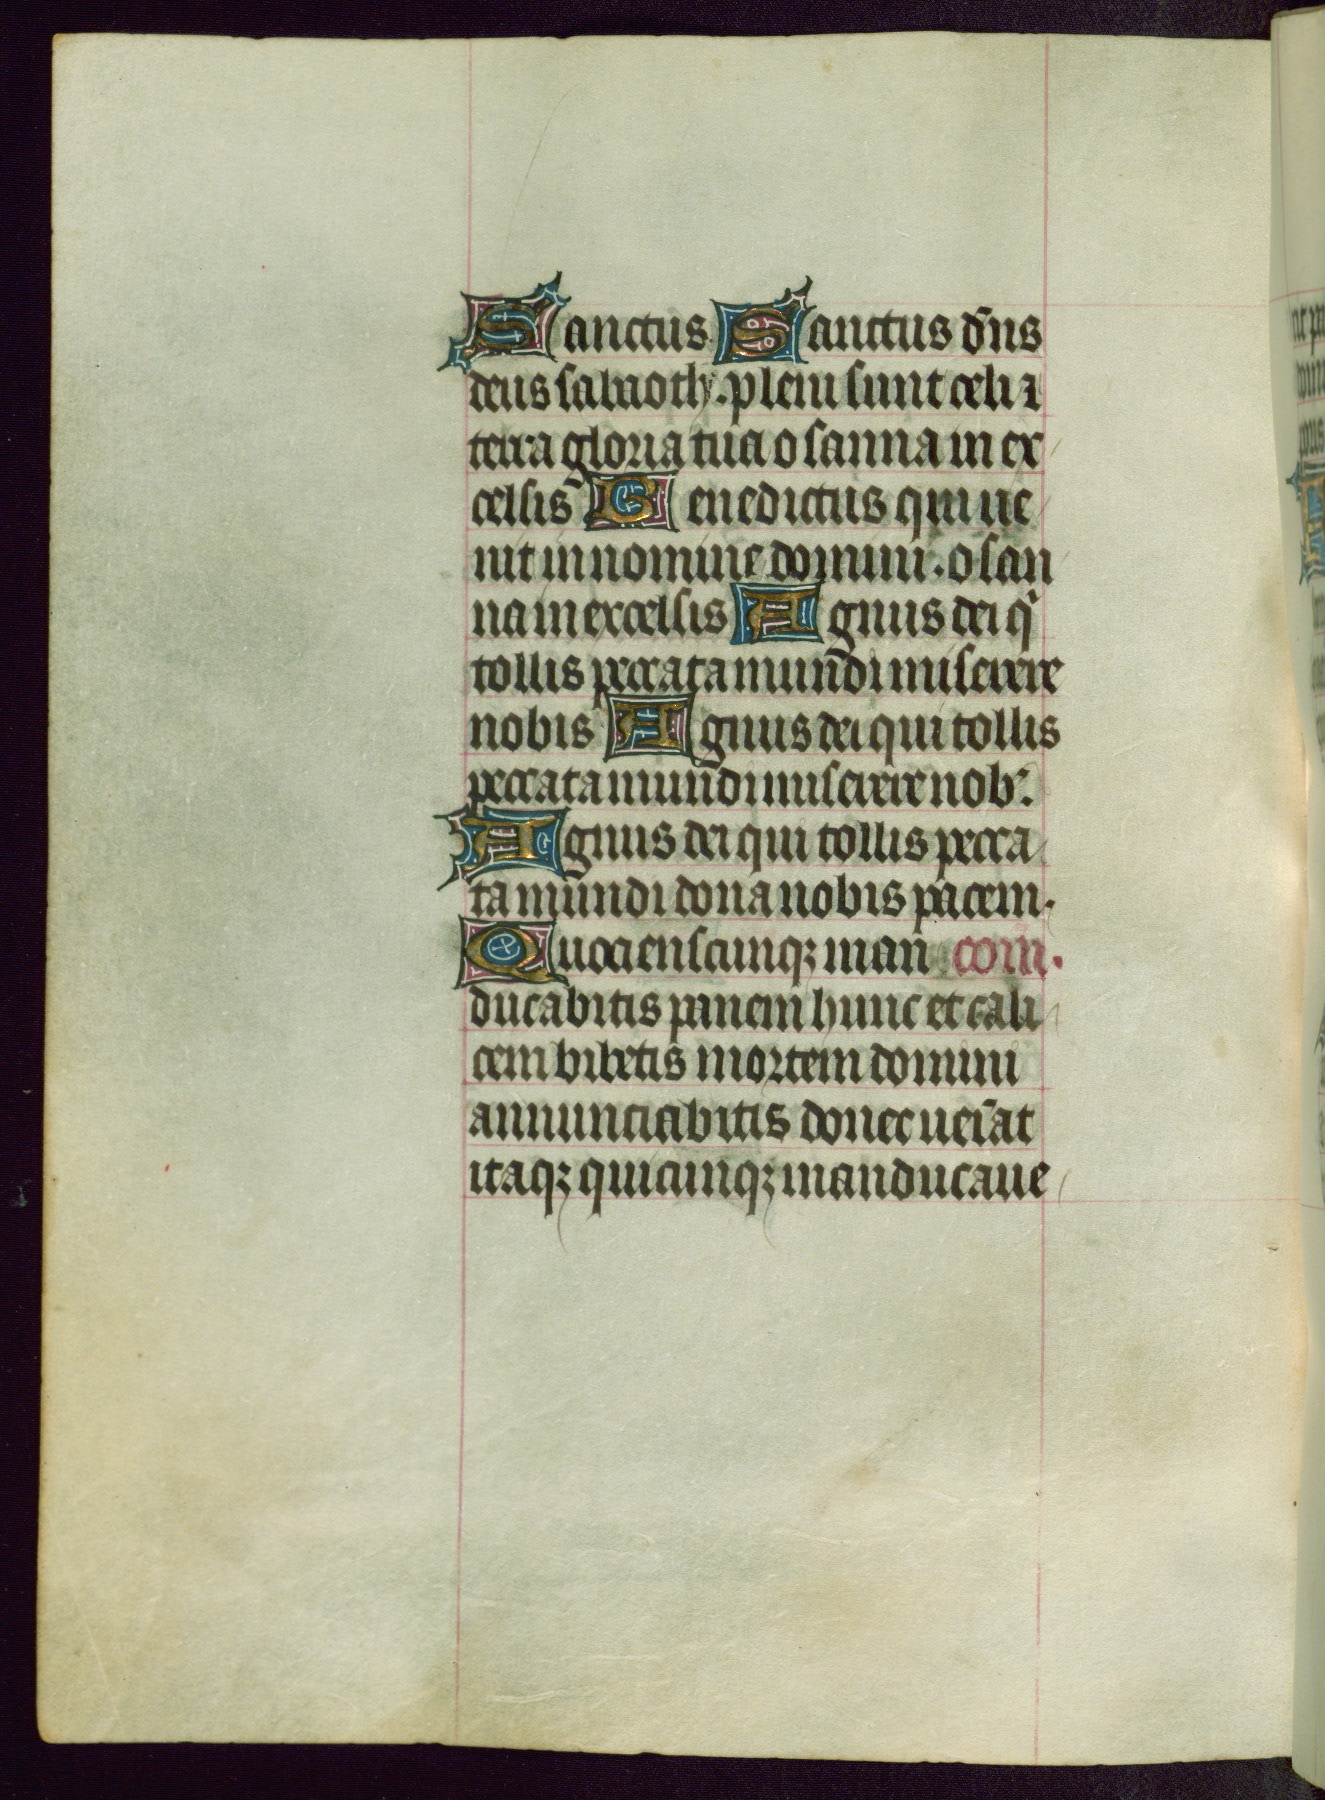 Sanctus Sanctus dn̄s
deus sabaoth. pleni sunt celi ⁊
terra gloria tua osanna in ex
celsis Benedictus qui ue
nit in nomine domini. osan
na in excelsis Agnus dei qͥ
tollis peccata mundi miserere
nobis Agnus dei qui tollis
peccata mundi miserere nob.
Agnus dei qui tollis pecca
ta mundi dona nobis pacem.
Quociensciunqꝫ man com.
ducabitis panem hunc et cali
cem bibetis mortem domini
annunciabitis donec uen̄at
itaqꝫ quicunqꝫ manducaue